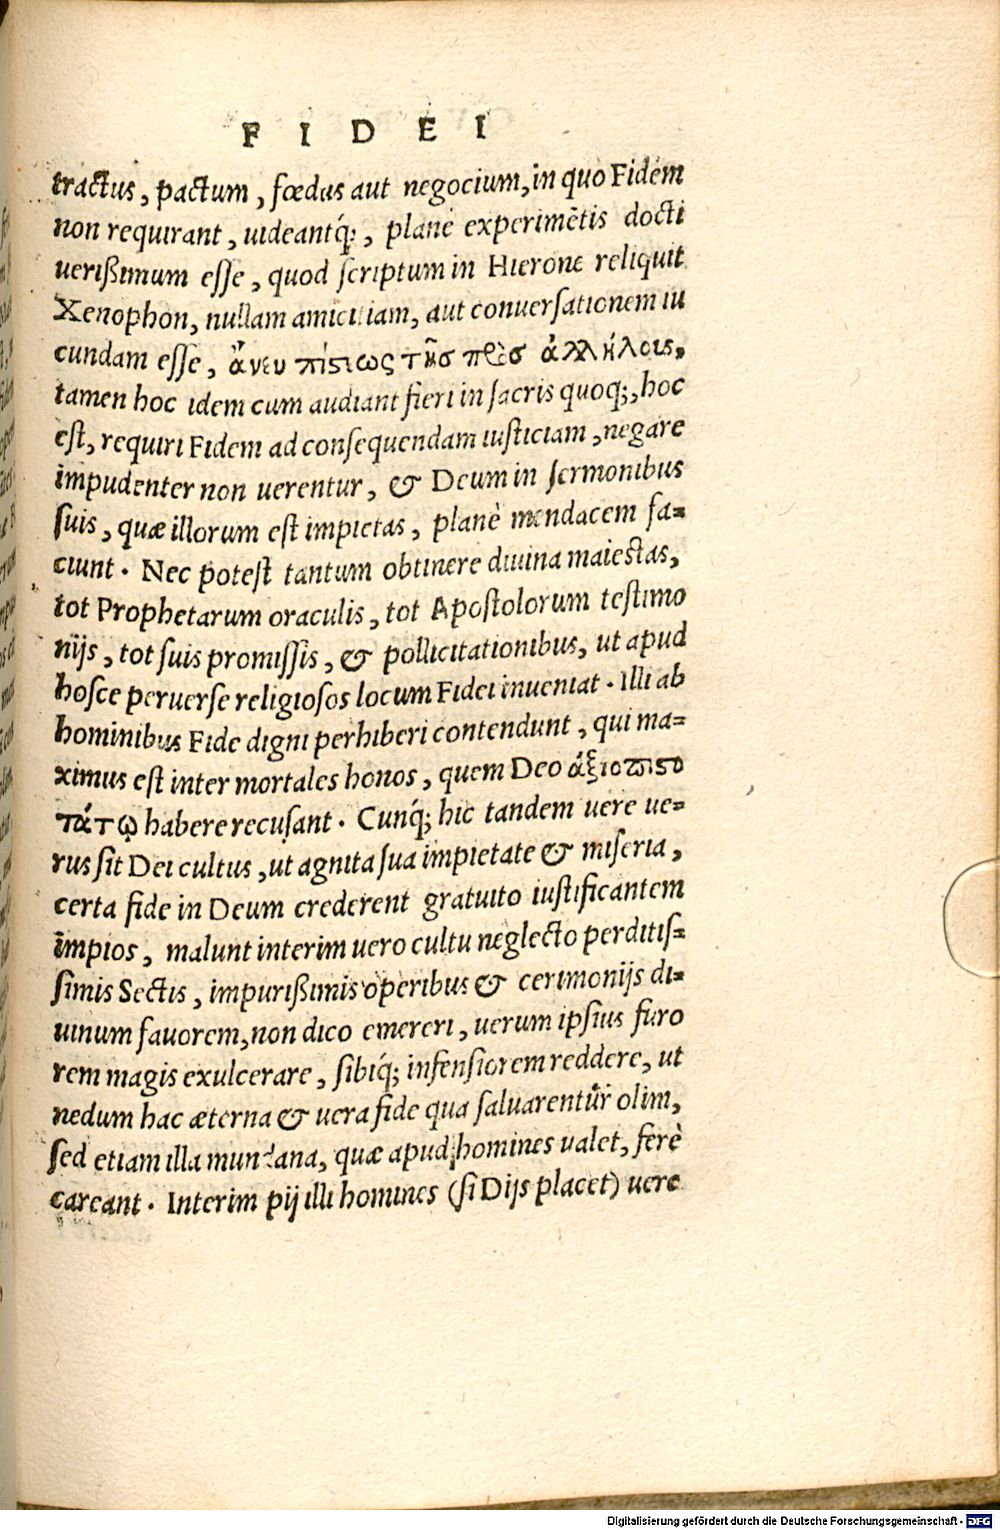 F I D E I
tractus, pactum, fœdus aut negocium, in quo Fidem
non requirant, uideantq́;, planè experimẽtis docti
uerißimum esse, quod scriptum in Hierone reliquit
Xenophon, nullam amicitiam, aut conuersationem iu
cundam esse, ἄνευ πίστεως τῆσ πρὸσ ἀλλήλοις,
tamen hoc idem cum audiant fieri in sacris quoq;, hoc
est, requiri Fidem ad consequendam iusticiam, negare
impudenter non uerentur, & Deum in sermonibus
suis, quæ illorum est impietas, planè mendacem fa=
ciunt. Nec potest tantum obtinere diuina maiestas,
tot Prophetarum oraculis, tot Apostolorum testimo
nijs, tot suis promissis, & pollicitationibus, ut apud
hosce peruerse religiosos locum Fidei inueniat. Illi ab
hominibus Fide digni perhiberi contendunt, qui ma=
ximus est inter mortales honos, quem Deo ἀξιοπιστο
τάτῳ habere recusant. Cunq́; hic tandem uere ue=
rus sit Dei cultus, ut agnita sua impietate & miseria,
certa fide in Deum crederent gratuito iustificantem
impios, malunt interim uero cultu neglecto perditis=
simis Sectis, impurißimis operibus & cerimonijs di=
uinum fauorem, non dico emereri, uerum ipsius furo
rem magis exulcerare, sibiq́; infensiorem reddere, ut
nedum hac æterna & uera fide qua saluarentur olim,
sed etiam illa mundana, quæ apud homines ualet, ferè
careant. Interim pij illi homines (si Dijs placet) uere
Digitalisierung gefördert durch die Deutsche Forschungsgemeinschaft - DFG